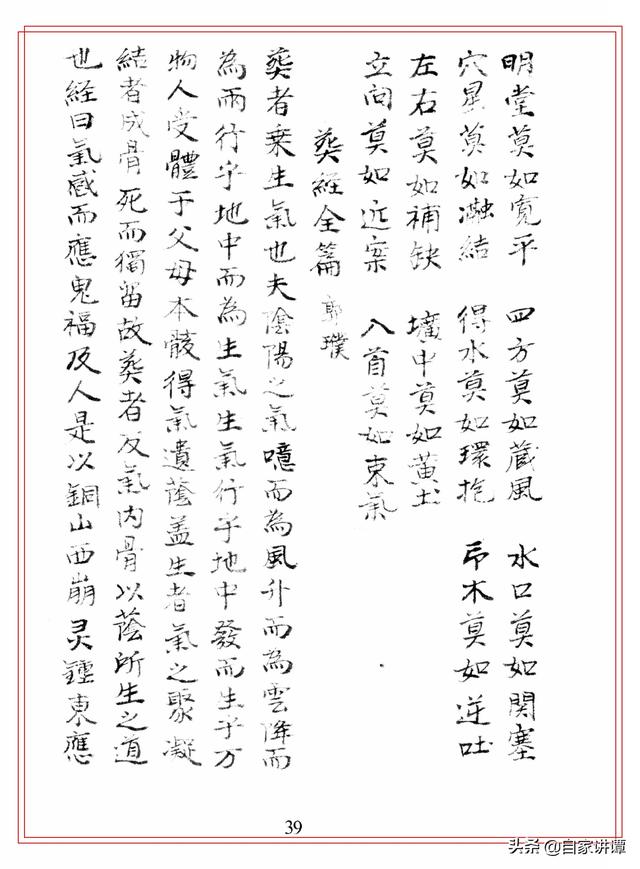 明堂莫如寬平 四方莫如蔵風 水口莫如関塞
穴星莫如瀜結 得水莫如環抱 木莫如逆吐
左右莫如補缺 壙中莫如黄土
立向莫如近案 入首莫如束氣
葬經全篇 郭璞
葬者乗生氣也夫陰陽之氣噫而為風升而為雲降而
為雨行乎地中而為生氣生氣行乎地中發而生乎万
物人受體于父母本骸得氣遺蔭盖生者氣之聚凝
結者成骨死而獨留故葬者反氣内骨以蔭所生之道
也経曰氣感而應鬼福及人是以銅山西崩灵鍾東應
39
头条 @自家讲谭